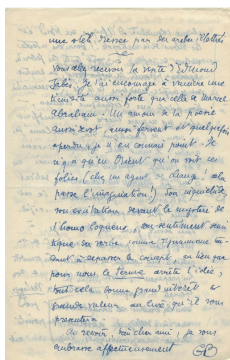 une stèle dressée par des arabes illettrés
Vous allez recevoir la visite d'Edmond
Jabès. Je l'ai encouragé à vaincre une
timidité aussi forte que celle de Marcel
Abraham. Un amour de la poésie
aussi fort, aussi fervent et quelquefois
éperdu, je n'en connais point. Je
n'y a qu'en Orient qu'on voit ces
folies (chez un agent de change! cela
passe l'imagination) Son inquiétude
son exaltation devant le mystère de
l'homo loquens, un sentiment
du verbe comme
à dépasser le concept, au lieu que
pour nous le terme arrête l'idée,
tout cela donne grand intérêt et
grande valeur au livre qu'il vous
présentera.
Au revoir, mon cher ami, je vous
embrasse affectueusement
GB